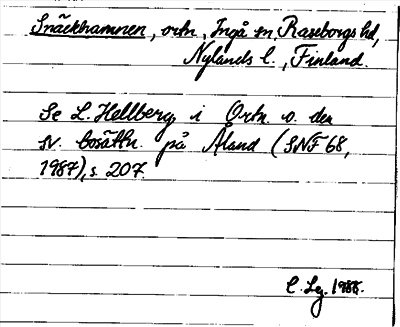 Snäckhamnen, ortn, Ingå sn, Raseborgs hd,
Nylands l., Finland.
Se L. Hellberg i Ortn. o. den
sv. bosättn. på Åland (SNF 68,
1987), s. 207.
C. Lg. 1988.